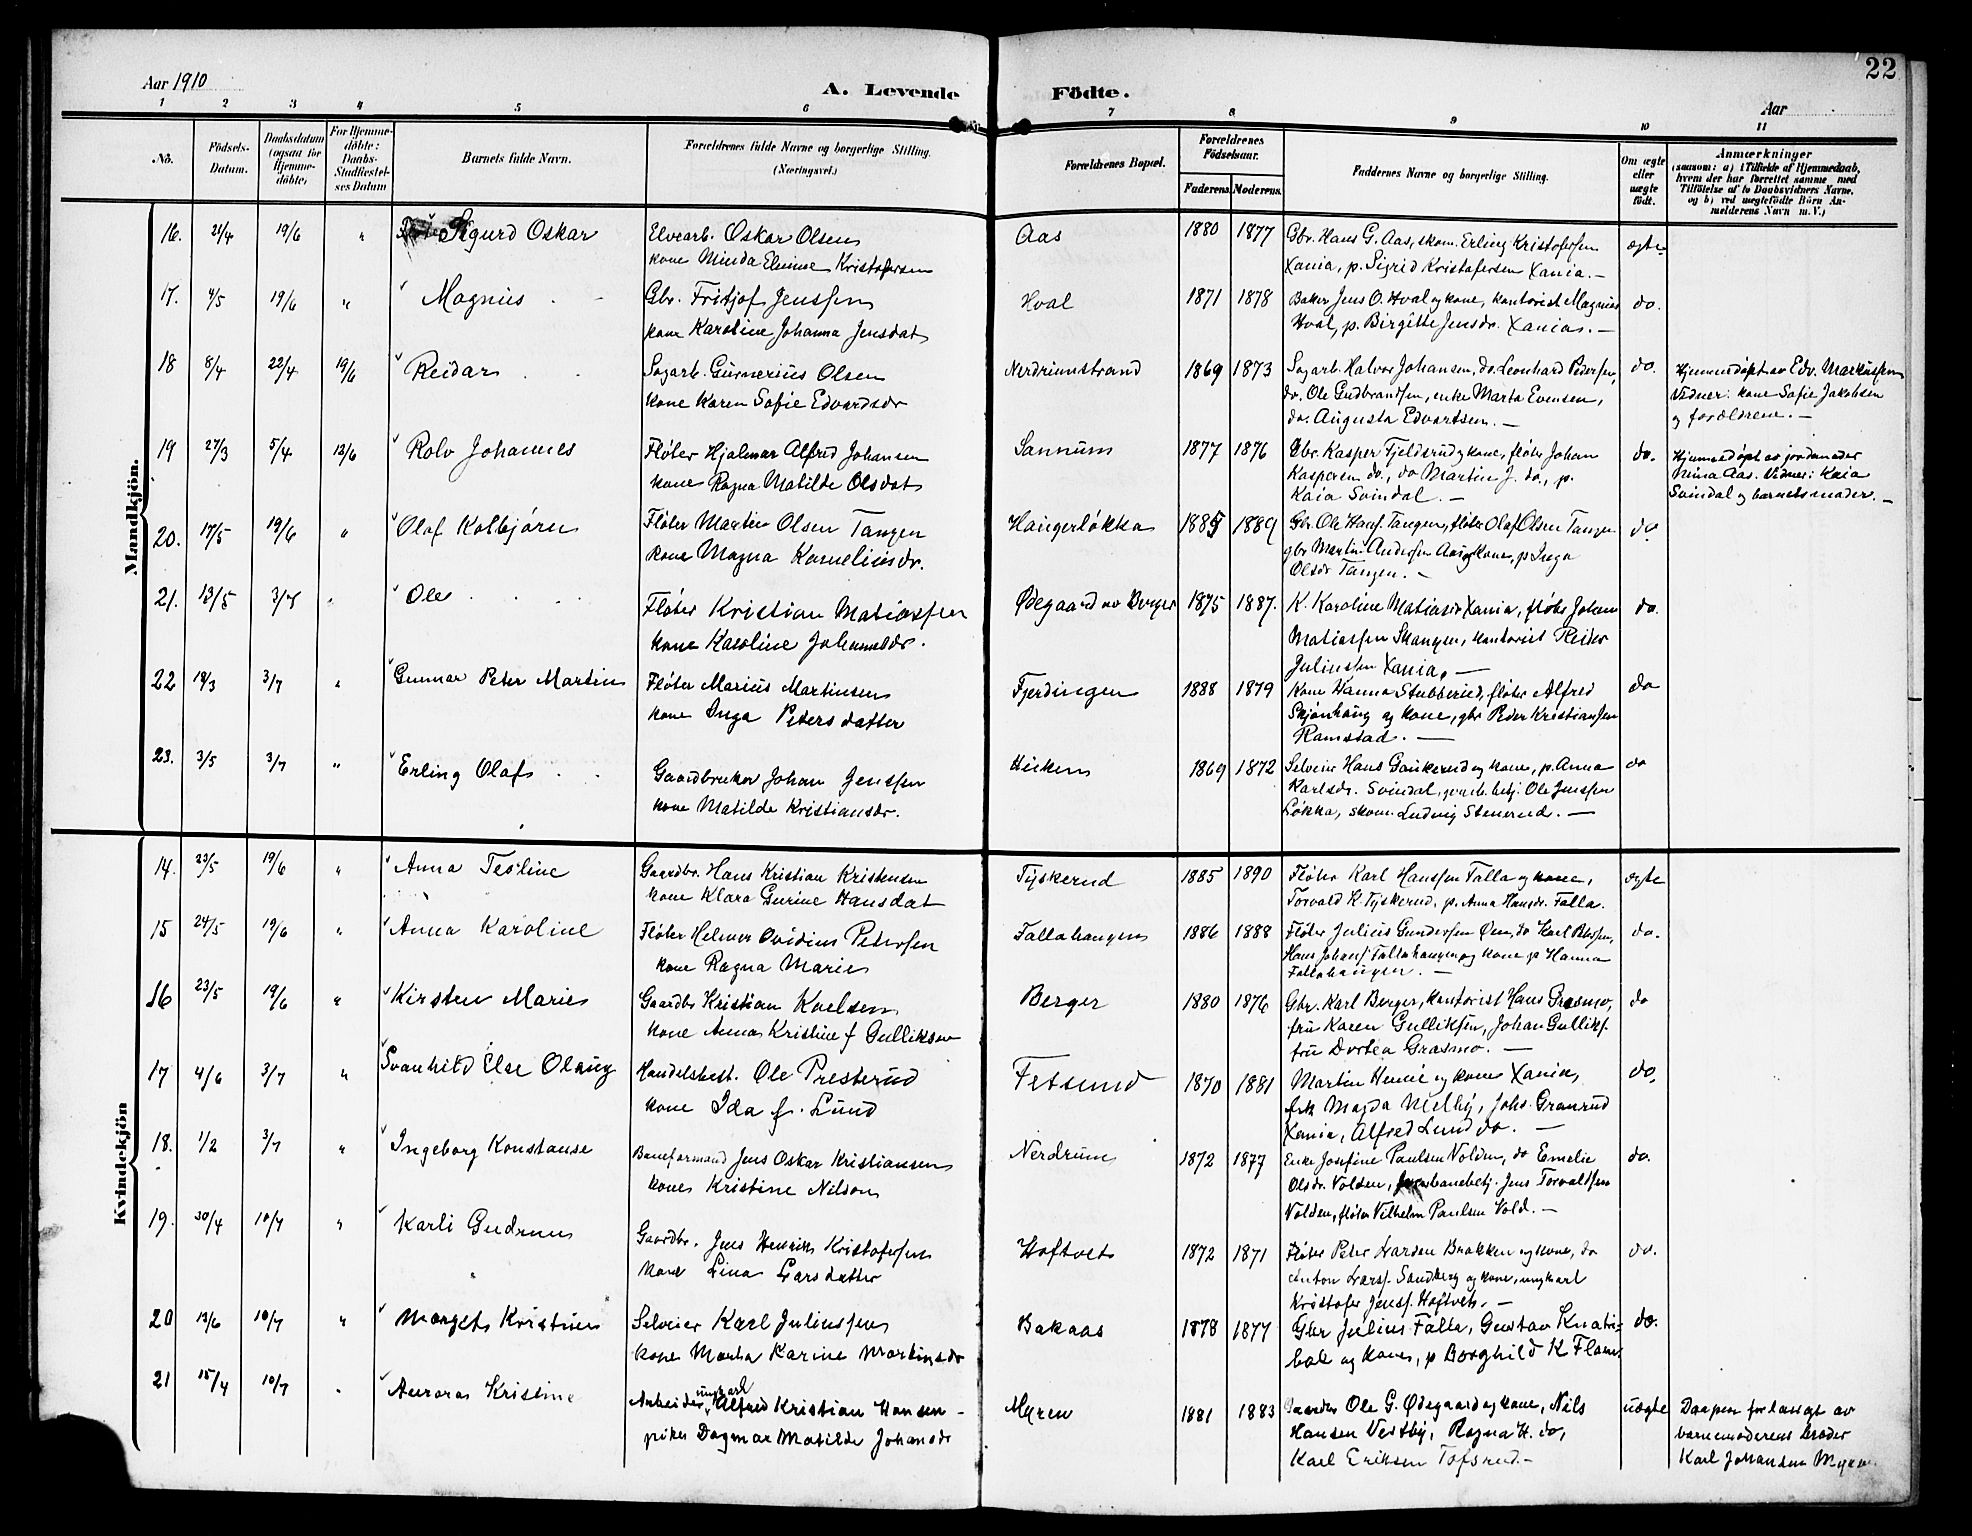 22
Aar 1910
A. Levende Födte.
Aar
1 2 3 4 5 6 7 8 9 10 11
No.
Födsels-Datum.
Daabsdatum (ogsaa for Hjemme-döbte)
For Hjemme-döbte: Daabs-Stadfæstel-ses Datum
Barnets fulde Navn.
Forældrenes fulde Navne og borgerlige Stilling.
(Næringsvei.)
Forældrenes Bopæl.
Forældrenes Födselsaar.
Faderens. Moderens.
Faddernes Navne og borgerlige Stilling.
Om ægte eller uægte födt.
Anmærkninger
(saasom: a) i Tilfælde af Hjemmedaab,
hvem der har forrettet samme med
Tilföielse af to Daabsvidners Navne,
og b) ved uægtefödte Börn An-
melderens Navn m. V.)
Mandkjön.
16. 21/4 19/6 " Sigurd Oskar Elvearb. Oskar Olsen Aas 1880 1877 Gbr. Hans G. Aas, skom. Erling Kristofersen ægte
kone Minda Elmine Kristofersen Xania, p. Sigrid Kristofersen Xania. —
17. 4/5 19/6 " Magnus Gbr. Fritjof Jenssen Hval 1871 1878 Baker Jens O. Hval og kone, kontorist Magnus do.
kone Karoline Johanna Jensdat Hval, p. Birgitte Jensdr. Xania. —
18 8/4 22/4 19/6 Reidar Sagarb. Gunerius Olsen Nerdrumstrand 1869 1873 Sagarb. Halvor Johansen, do. Leonhard Pedersen, do. Hjemmedøpt av Edv. Markussen
kone Karen Sofie Edvardsdr do. Ole Gudbrandsen, enke Marta Evensen, Vidner: kone Sofie Jakobsen
do. Augusta Edvartsen. — og forældrene. —
19 27/3 5/4 12/6 Rolv Johannes Fløter Hjalmar Alfred Johansen Sannum 1877 1876 Gbr. Kasper Fjeldsrud og kone, fløter Johan do. Hjemmedøpt av jordmoder
kone Ragna Matilde Olsdat Kaspersen do., do Martin J. do., p. Nina Aas. Vidner: Kaia
Kaia Svindal. — Svindal og barnets moder. —
20. 17/5 19/6 " Olaf Kolbjørn Fløter Martin Olsen Tangen Haugerløkka 1885 1889 Gbr. Ole Hans. Tangen, fløter Olaf Olsen Tangen do
kone Magna Korneliusdr. gbr Martin Andersen Aas og kone, p Inga
Olsdr Tangen. —
21. 13/5 3/7 " Ole Fløter Kristian Matiassen Ødegaard av Berger 1875 1887. K. Karoline Matiasdr Xania, fløter Johan do.
kone Karoline Johannesdr. Matiassen Skangen, kontorist Reidar
Juliussen Xania. —
22 18/3 3/7 " Gunnar Peter Martin Fløter Marius Martinsen Fjerdingen 1888 1879 Kone Hanna Stubberud, fløter Alfred do
kone Inga Petersdatter Skjønhaug og kone, gbr Peder Kristiansen
Ramstad. —
23. 3/5 3/7 " Erling Olaf Gaardbruker Johan Jenssen Heiken 1869 1872 Selveier Hans Gaukerud og kone, p. Anna do
kone Matilde Kristiansdr. Karlsdr. Svindal, Ole Jenssen
Løkka, skom. Ludvig Stenerud. —
Kvindekjön
14. 23/5 19/6 " Anna Tesline Gaardbr. Hans Kristian Kristensen Tyskerud 1885 1890 Fløter Karl Hanssen Falla og kone, ægte
kone Klara Gurine Hansdat Torvald K. Tyskerud, p. Anna Hansdr. Falla.
15 24/5 19/6 " Anna Karoline Fløter Helmer Ovidius Petersen Fallahaugen 1886 1888 Fløter Julius Gundersen Øen, do Karl Peterssen, do.
kone Ragna Marie Hans Johans. Fallahaugen og kone p Hanna
Fallahaugen. —
16 23/5 19/6 " Kirsten Marie Gaardbr Kristian Karlsen Berger 1880 1876 Gbr. Karl Berger, kontorist Hans Grasmo, do
kone Anna Kristine f Gulliksen fru Karen Gulliksen, Johan Gulliks.
fru Dortea Grasmo. —
17 4/6 3/7 " Svanhild Else Olaug Handelsbest. Ole Presterud Fetsund 1870 1881 Martin Henie og kone Xania, do.
kone Ida f. Lund frk Magda Melby, Johs. Granrud
Xania, Alfred Lund do. —
18. 1/2 3/7 " Ingeborg Konstanse Baneformand Jens Oskar Kristiansen Nerdrum 1872 1877 Enke Josefine Paulsen Volden, do Emelie do.
kone Kristine Nilson Olsdr. Volden, banebetj. Jens Torvaldsen
Volden, fløter Vilhelm Paulsen Vold. —
19. 30/4 10/7 " Karli Gudrun Gaardbr. Jens Henrik Kristofersen Hoftvet 1872 1871 Fløter Peter Larsen Brakken og kone, do do.
kone Lina Larsdatter Anton Larss. Sandberg og kone, ungkarl
Kristofer Jenss. Hoftvet. —
20 13/6 10/7 " Margit Kristine Selveier Karl Juliussen Bakaas 1878 1877 Gbr Julius Falla, Gustav do.
kone Marta Karine Martinsdr og kone, p Borghild K Flam.
21 15/4 10/7 " Aurora Kristine Arbeider, ungkarl Alfred Kristian Hansen – Myren 1881 1883 Ole G. Ødegaard og kone, Nils uægte Daapen forlangt av
pike Dagmar Matilde Johansdr Hansen Vestby, Ragna H. do, barnemoderens broder
Karl Eriksen Tofsrud. – Karl Johansen Myren